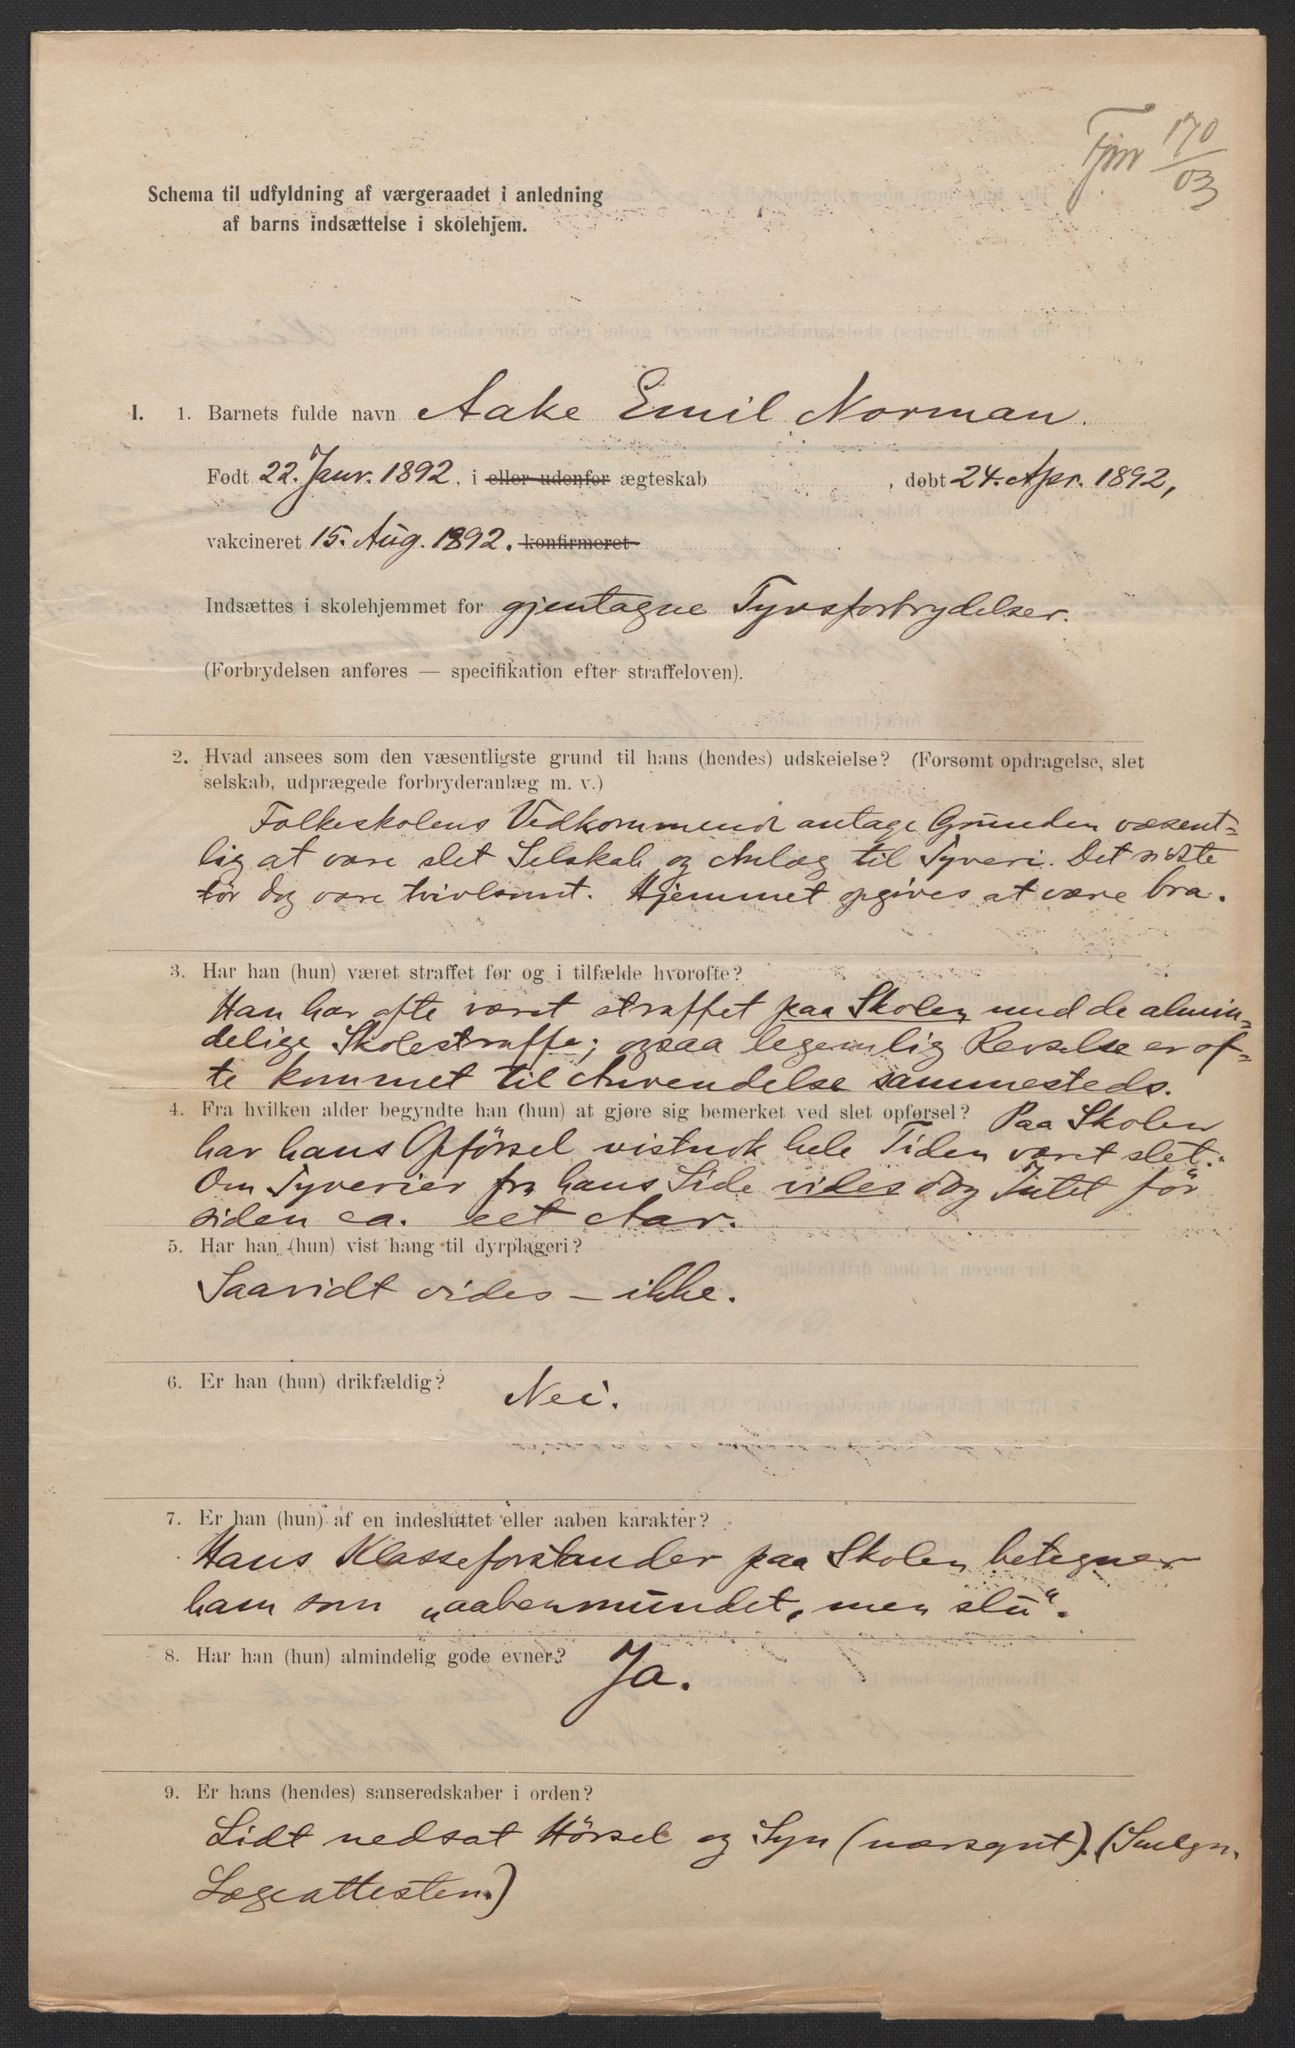 170
03
Schema til udfyldning af værgeraadet i anledning
af barns indsættelse i skolehjem.
I. 1. Barnets fulde navn Aake Emil Norman.
Født 22. Janr. 1892, i eller udenfor ægteskab , døbt 24. Apr. 1892,
vakcineret 15. Aug. 1892. konfirmeret
Indsættes i skolehjemmet for gjentagne Tyvsforbrydelser.
(Forbrydelsen anføres — specifikation efter straffeloven).
2. Hvad ansees som den væsentligste grund til hans (hendes) udskeielse? (Forsømt opdragelse, slet
selskab, udprægede forbryderanlæg m. v.)
Folkeskolens Vedkommende antage Grunden væsent-
lig at være slet Selskab og Anlæg til Tyveri. Det sidste
tør dog være tvivlsomt. Hjemmet opgives at være bra.
3. Har han (hun) været straffet før og i tilfælde hvorofte?
Han har ofte været straffet paa Skolen med de almin-
delige Skolestraffe; ogsaa legemlig Revselse er of-
te kommet til Anvendelse sammesteds.
4. Fra hvilken alder begyndte han (hun) at gjøre sig bemerket ved slet opførsel? Paa Skolen
har hans Opförsel vistnok hele Tiden været slet.
Om Tyverier fra hans Side vides dog Intet för
siden ca. eet Aar.
5. Har han (hun) vist hang til dyrplageri?
Saavidt vides – ikke.
6. Er han (hun) drikfældig? Nei.
7. Er han (hun) af en indesluttet eller aaben karakter?
Hans Klasseforstander paa Skolen betegner
ham som „aabenmundet, men slu“.
8. Har han (hun) almindelig gode evner? Ja.
9. Er hans (hendes) sanseredskaber i orden?
Lidt nedsat Hörsel og Syn (nærsynt). (Smlgn.
Lægeattesten.)